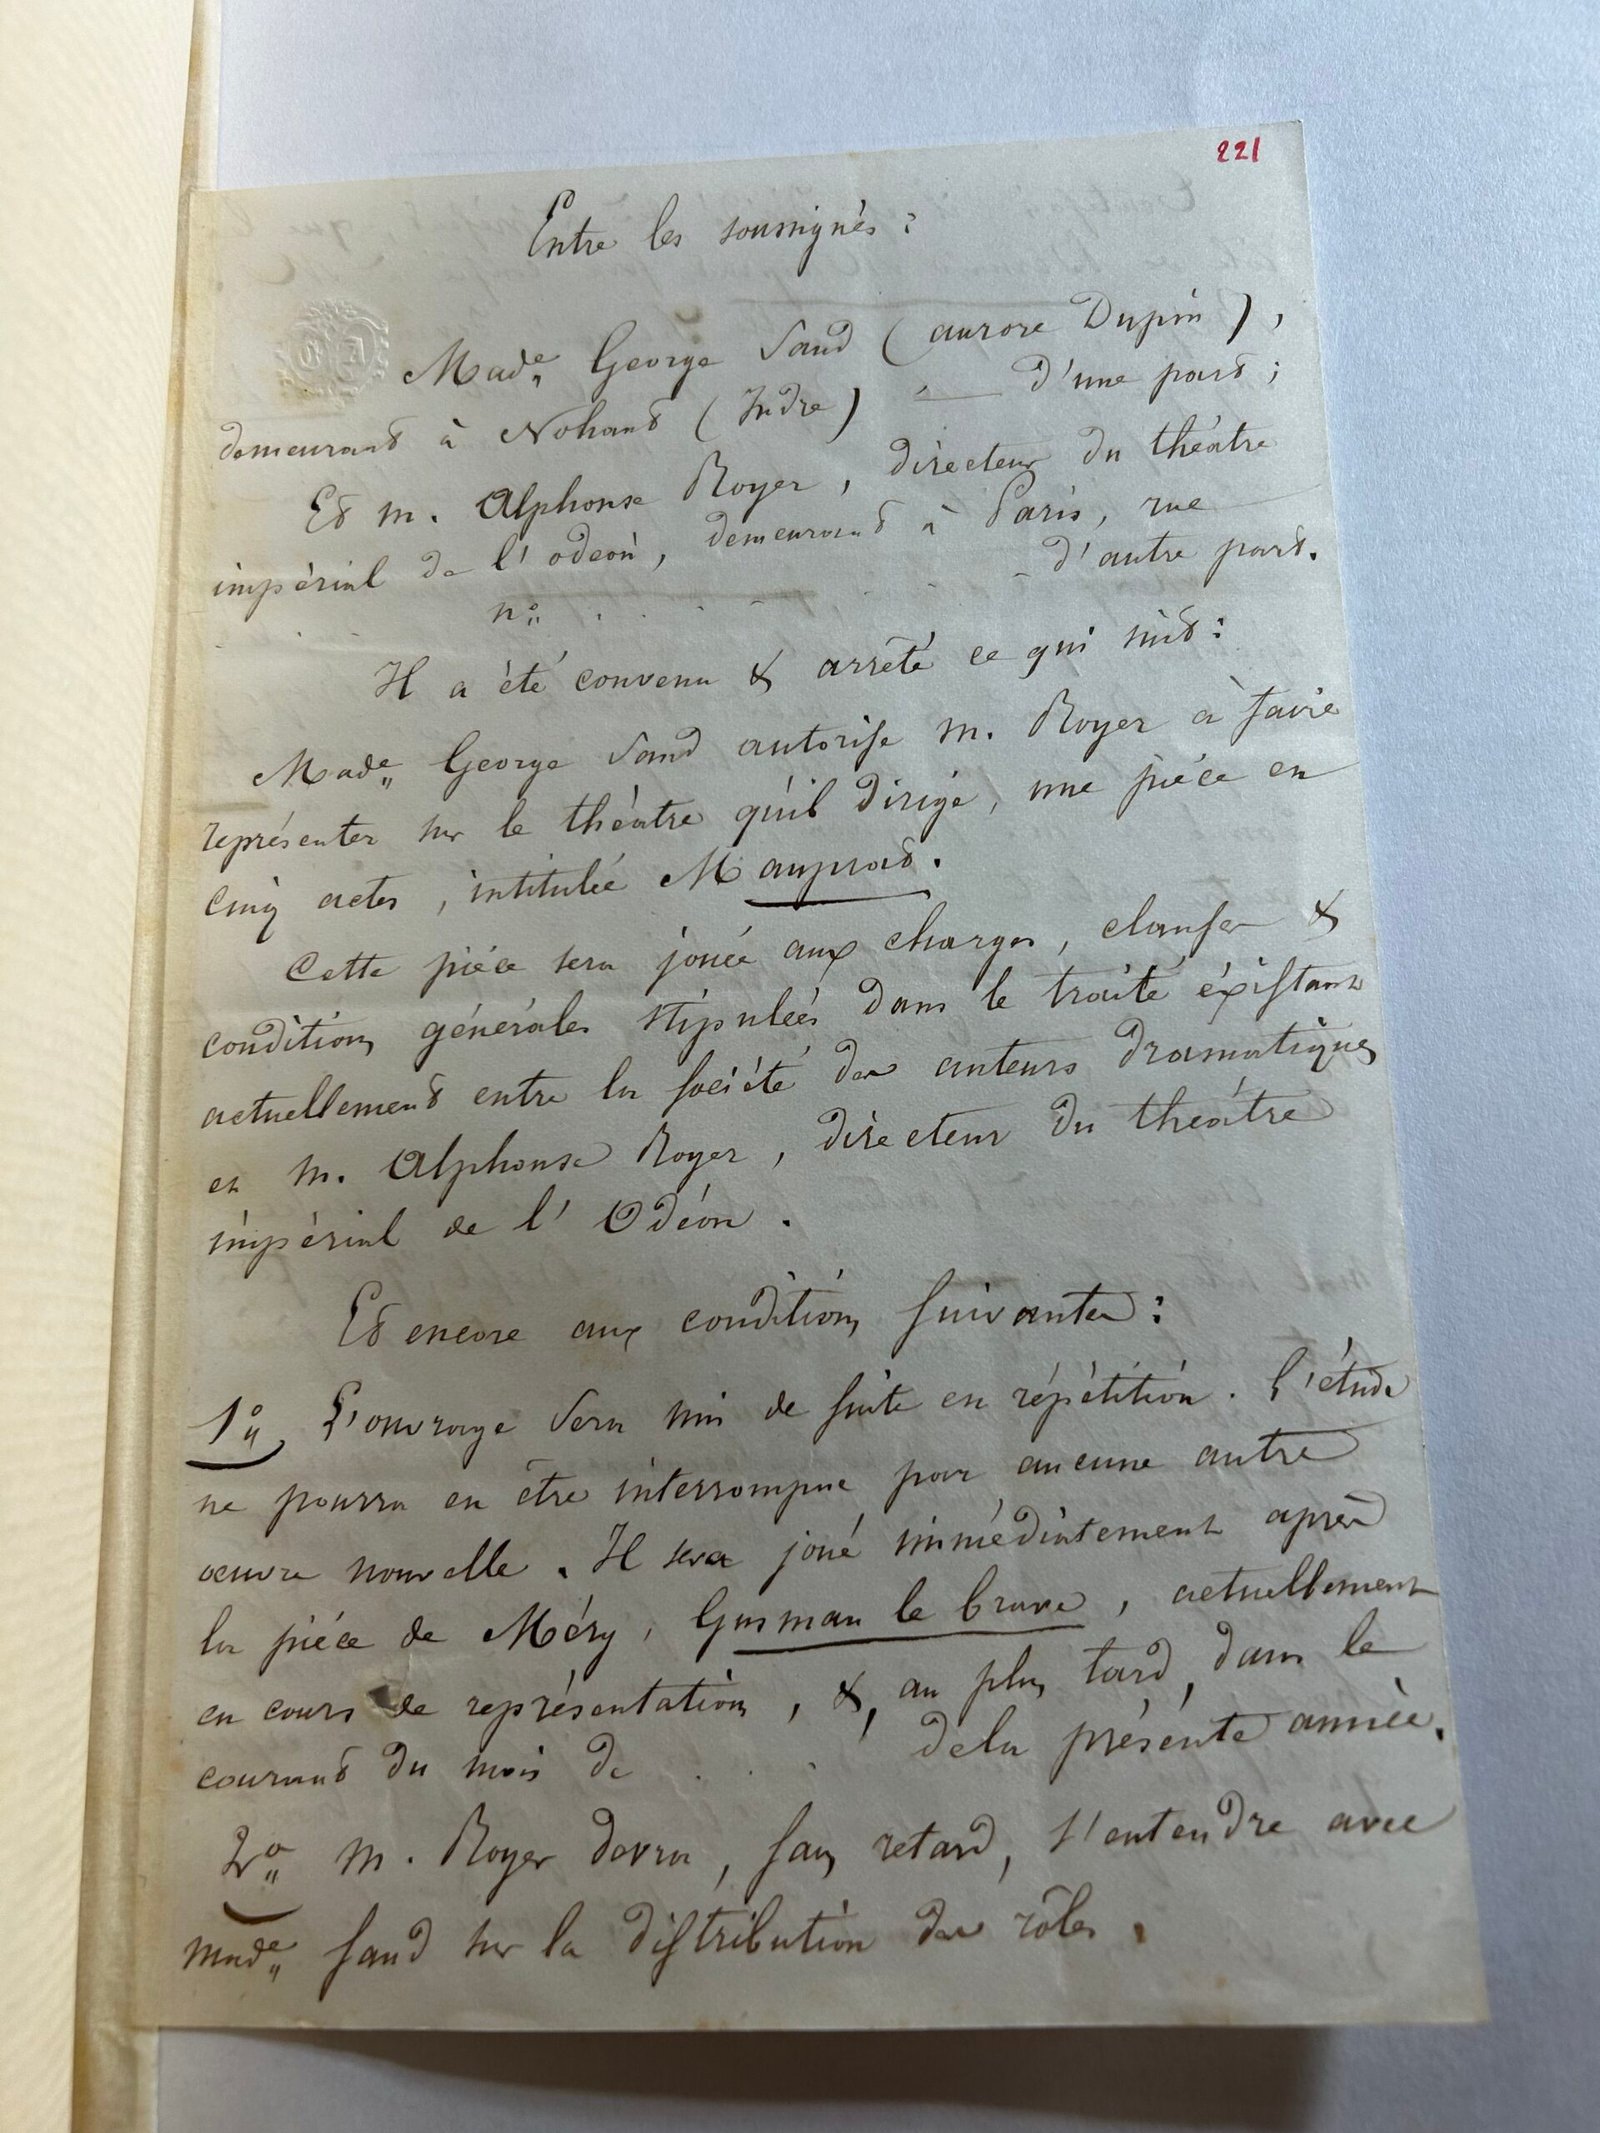 221
Entre les soussignés :
Made George Sand (aurore Dupin),
demeurant à Nohant (Indre) — d'une part ;
Et m. Alphonse Royer, directeur du théatre
impérial de l'odeon, demeurant à Paris, rue
no . . . . . d'autre part.
Il a été convenu & arrêté ce qui suit :
Made George Sand autorise m. Royer à faire
représenter sur le théatre qu'il dirige, une pièce en
cinq actes, intitulée Mauprat.
Cette pièce sera jouée aux charges, clauses &
conditions générales stipulées dans le traité éxistant
actuellement entre la société des auteurs dramatiques
et m. Alphonse Royer, directeur du théatre
impérial de l'Odéon.
Et encore aux conditions suivantes :
1o L'ouvrage sera mis de suite en répétition. L'étude
ne pourra en être interrompue par aucune autre
oeuvre nouvelle. Il sera joué immédiatement après
la pièce de Méry, Gusman le brave, actuellement
en cours de représentations, &, au plus tard, dans le
courant du mois de . . . dela présente année.
2o m. Royer devra, sans retard, s'entendre avec
made Sand sur la distribution des rôles.